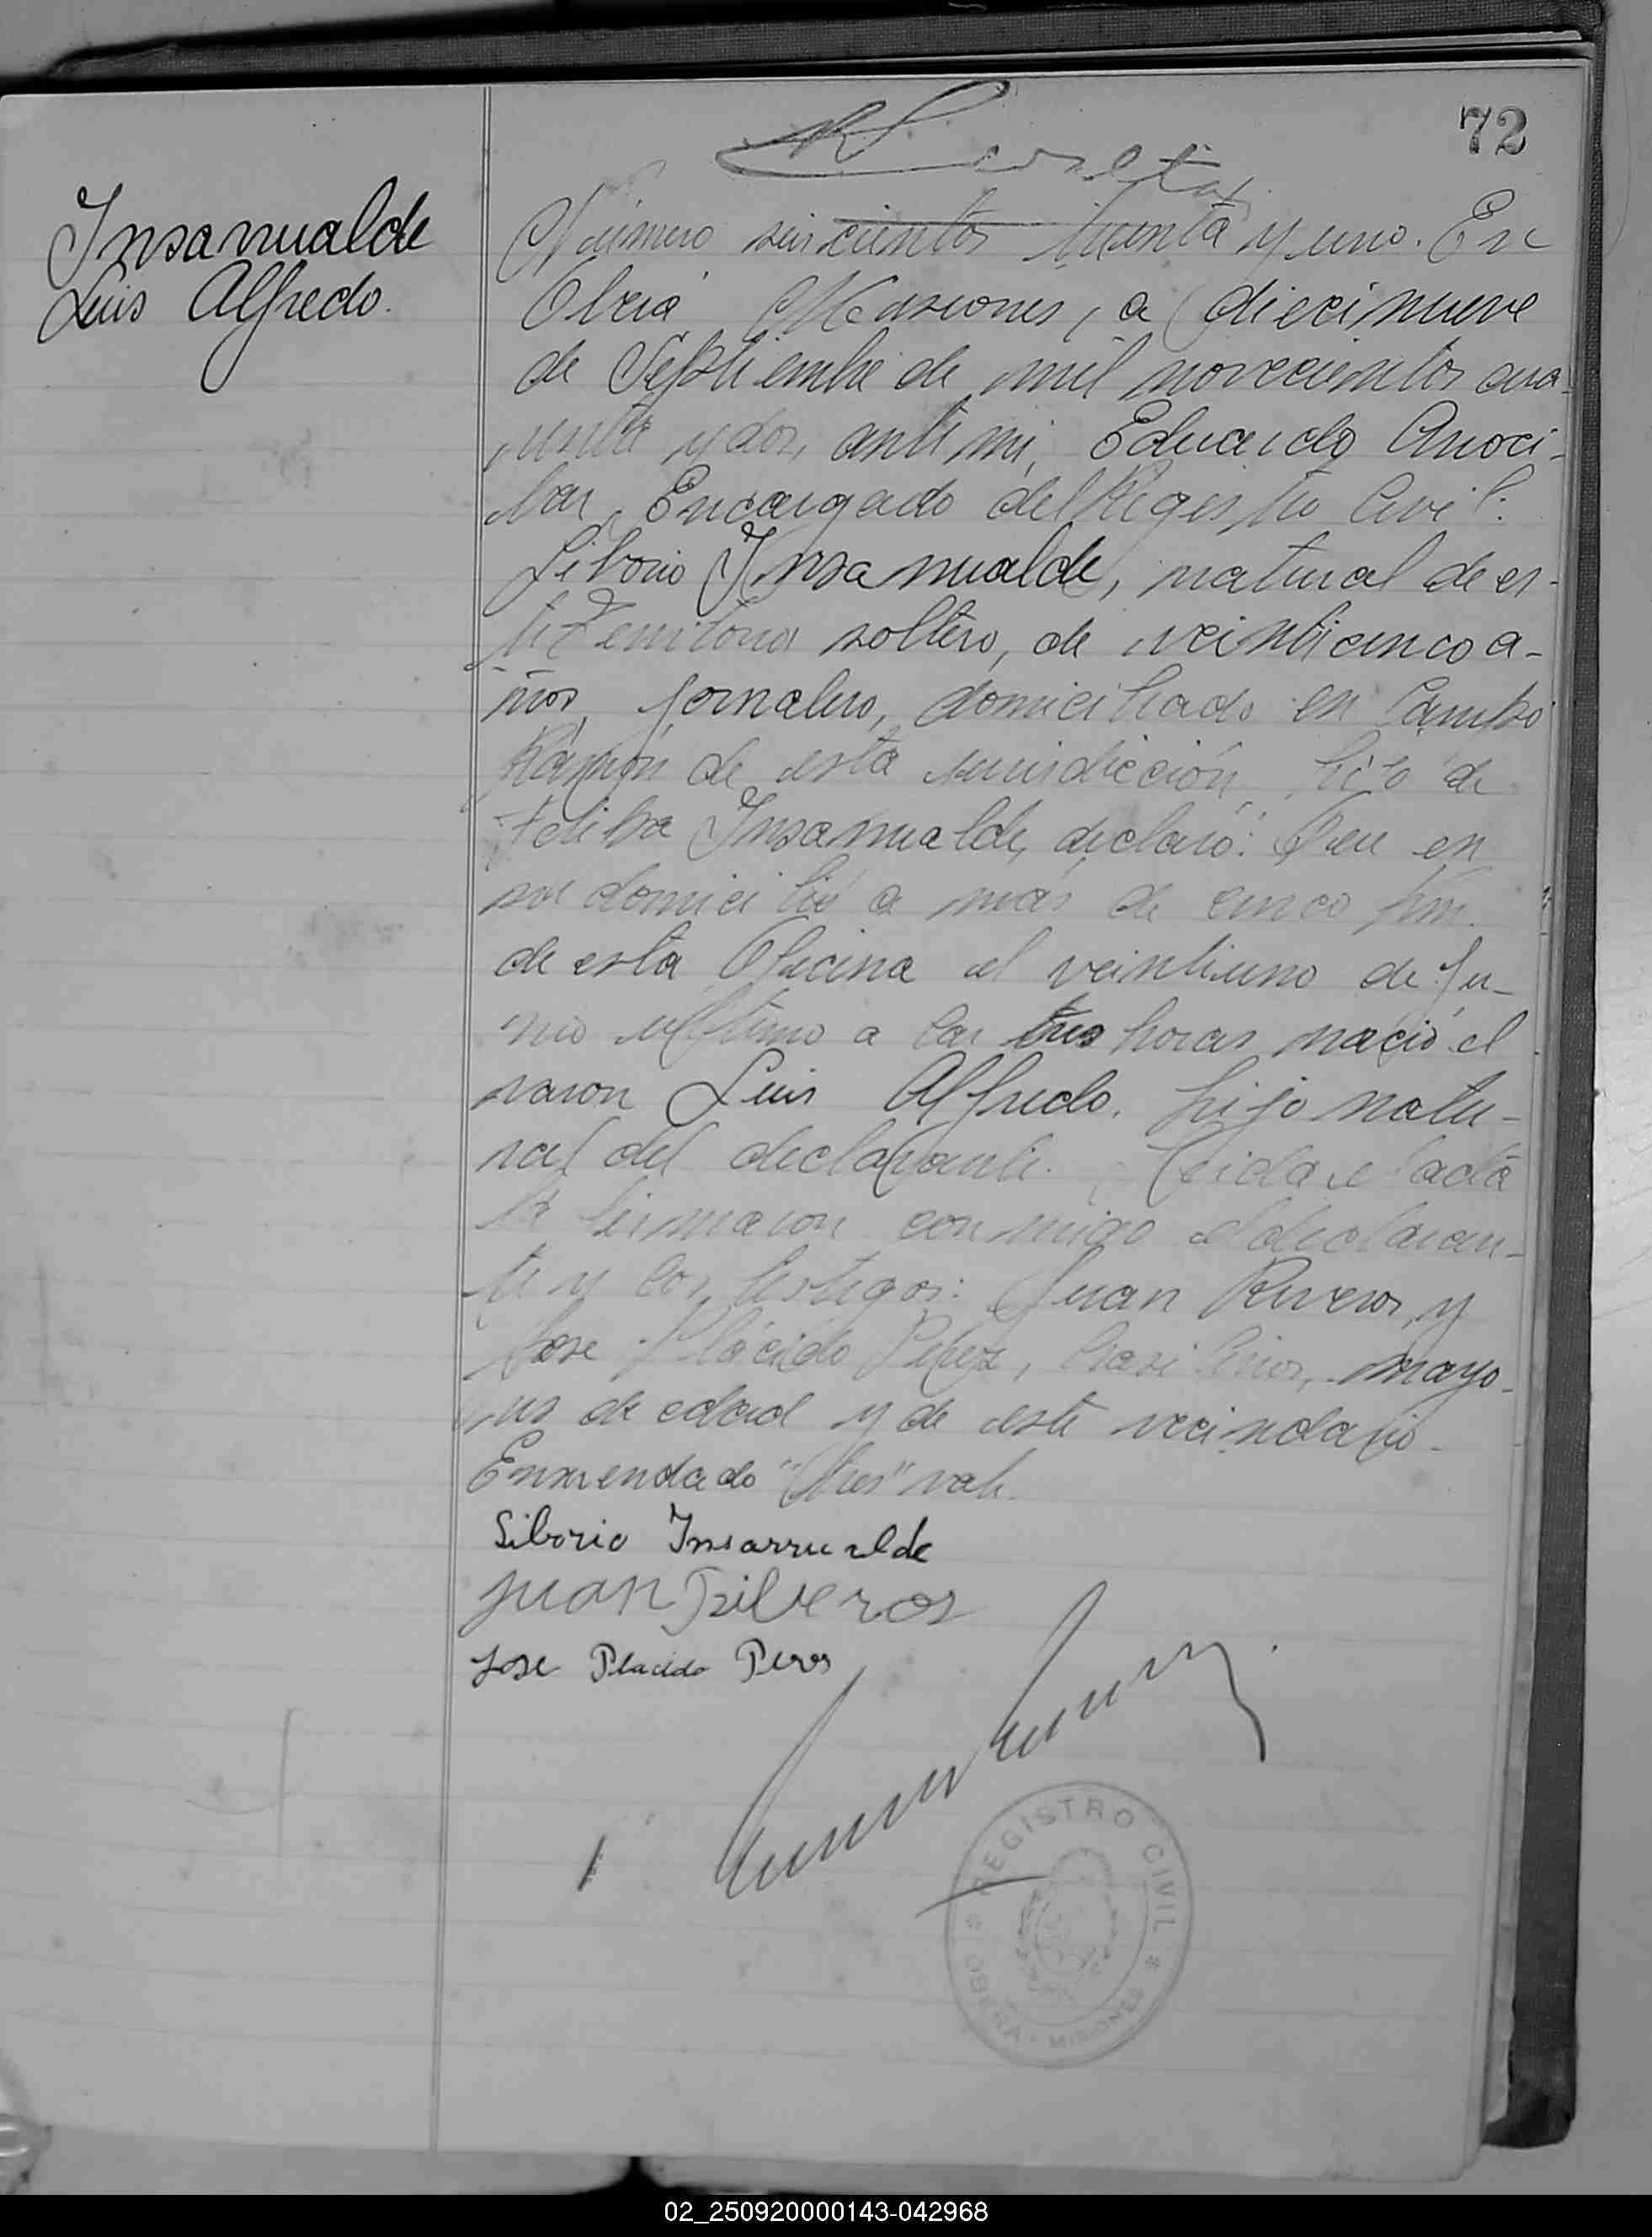 72
Insarrualde
Luis Alfredo.
Número seiscientos treinta y uno. En
Oberá, Misiones, a diecinueve
de Septiembre de mil novecientos cua-
renta y dos, ante mi, Eduardo Aroci-
bar, Encargado del Registro Civil:
Liborio Insarrualde, natural de es-
te Territorio soltero, de veinticinco a-
ños, jornalero, domiciliado en Campo
Ramón de esta jurisdicción, hijo de
Felipa Insarrualde, declaró: Que en
su domicilio a más de cinco km.
de esta Oficina el veintiuno de Ju-
nio último a las tres horas nació el
varon Luis Alfredo, hijo natu-
ral del declarante. Leida el acta
la firmaron conmigo el declaran-
te y los testigos: Juan Riveros, y
José Plácido Perez, brasileños, mayo-
res de edad y de este vecindario.
Enmendado "tres" vale.
Liborio Insarrualde
Juan Riveros
Jose Placido Peres
REGISTRO CIVIL
OBERÁ - MISIONES
02_250920000143-042968